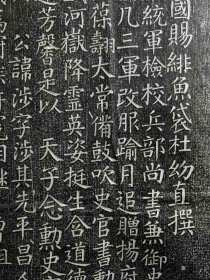 國賜緋魚袋杜幼直撰
統軍檢校兵部尚書兼御史
几三軍改服踰月追贈揚府
葆翿大常備鼓吹史官書勳
河嶽降靈英姿挺生含道德
芳馨是以 天子念勲史
公諱涉字涉其先平昌